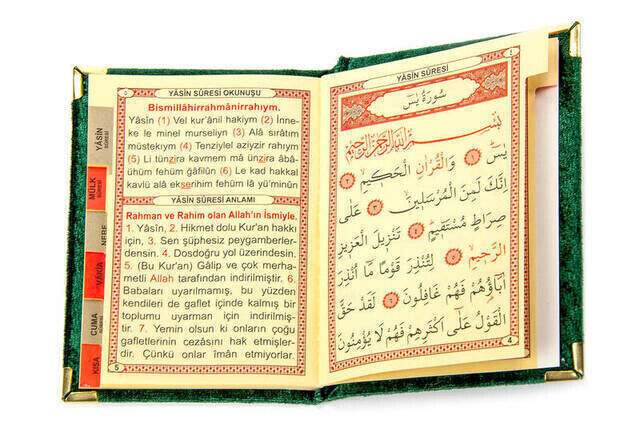 YÂSİN SÛRESİ OKUNUŞU
Bismillâhirrahmânirrahıym.
Yâsîn (1) Vel kur'ânil hakiym (2) İnne-
ke le minel murseliyn (3) Alâ sırâtim
müstekıym (4) Tenziylel aziyzir rahıym
(5) Li tünzira kavmem mâ ünzira âbâ-
ühüm fehüm ğâfilûn (6) Le kad hakkal
kavlü alâ ekserihim fehüm lâ yü'minûn
YÂSİN SÛRESİ ANLAMI
Rahman ve Rahim olan Allah'ın İsmiyle.
1. Yâsîn, 2. Hikmet dolu Kur'an hakkı
için, 3. Sen şüphesiz peygamberler-
densin. 4. Dosdoğru yol üzerindesin.
5. (Bu Kur'an) Gâlip ve çok merha-
metli Allah tarafından indirilmiştir. 6.
Babaları uyarılmamış, bu yüzden
kendileri de gaflet içinde kalmış bir
toplumu uyarman için indirilmiş-
tir. 7. Yemin olsun ki onların çoğu
gafletlerinin cezasını hak etmişler-
dir. Çünkü onlar îmân etmiyorlar.
5
YÂSİN
SÛRESİ
MÜLK
SÛRESİ
NEBE
VÂKIA
CUMA
KISA
٤
YÂSİN SÛRESİ
سُورَةُ يٰسٓ
بِسْمِ اللّٰهِ الرَّحْمٰنِ الرَّحِيمِ
يٰسٓ ﴿١﴾ وَالْقُرْاٰنِ الْحَكِيمِ ﴿٢﴾
اِنَّكَ لَمِنَ الْمُرْسَلِينَ ﴿٣﴾ عَلٰى
صِرَاطٍ مُسْتَقِيمٍ ﴿٤﴾ تَنْزِيلَ الْعَزِيزِ
الرَّحِيمِ ﴿٥﴾ لِتُنْذِرَ قَوْمًا مَٓا اُنْذِرَ
اٰبَٓاؤُهُمْ فَهُمْ غَافِلُونَ ﴿٦﴾ لَقَدْ حَقَّ
الْقَوْلُ عَلٰٓى اَكْثَرِهِمْ فَهُمْ لَا يُؤْمِنُونَ
4